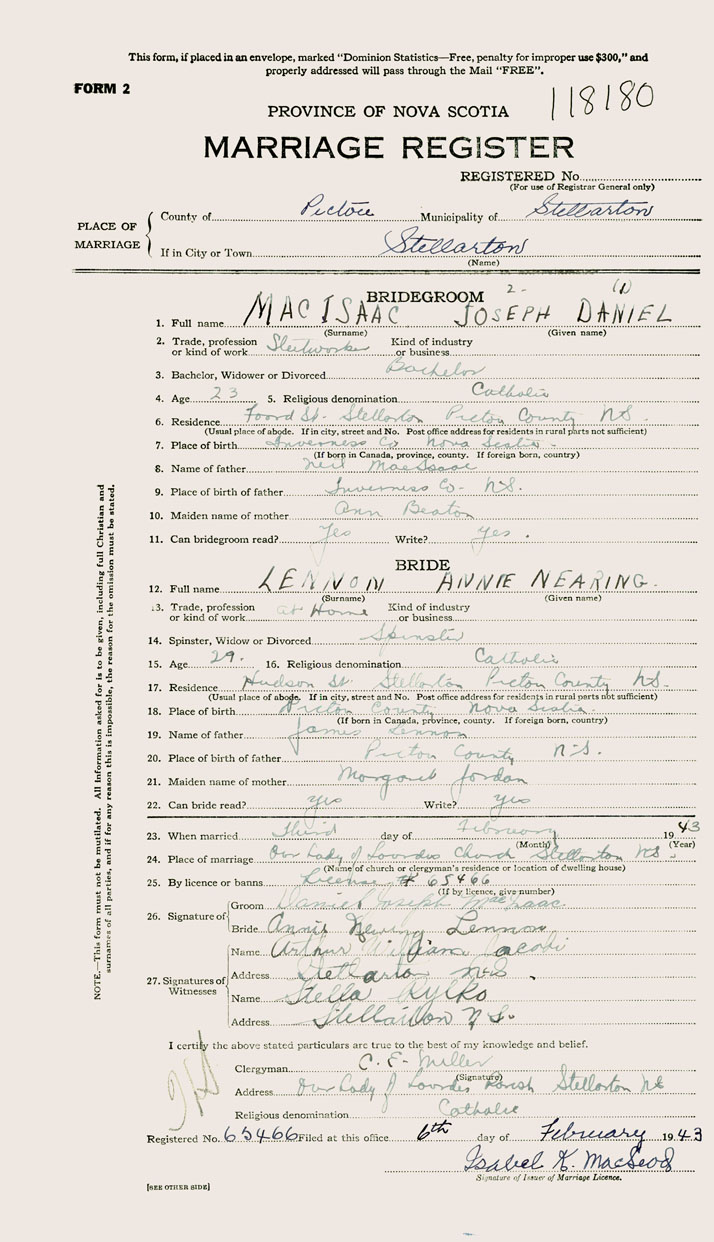 This form, if placed in an envelope, marked "Dominion Statistics—Free, penalty for improper use $300," and
properly addressed will pass through the Mail "FREE".
FORM 2
118180
PROVINCE OF NOVA SCOTIA
MARRIAGE REGISTER
REGISTERED No.
(For use of Registrar General only)
PLACE OF MARRIAGE
County of Pictou Municipality of Stellarton
If in City or Town Stellarton
(Name)
BRIDEGROOM 2- (1)
1. Full name MACISAAC JOSEPH DANIEL
(Surname) (Given name)
2. Trade, profession or kind of work Steelworker Kind of industry or business
3. Bachelor, Widower or Divorced Bachelor
4. Age 23 5. Religious denomination Catholic
6. Residence Foord St. Stellarton Pictou County N.S.
(Usual place of abode. If in city, street and No. Post office address for residents in rural parts not sufficient)
7. Place of birth Inverness Co Nova Scotia
(If born in Canada, province, county. If foreign born, country)
8. Name of father Neil MacIsaac
9. Place of birth of father Inverness Co- N.S.
10. Maiden name of mother Ann Beaton
11. Can bridegroom read? Yes Write? Yes.
BRIDE
12. Full name LENNON ANNIE NEARING.
(Surname) (Given name)
13. Trade, profession or kind of work at Home Kind of industry or business
14. Spinster, Widow or Divorced Spinster
15. Age 29. 16. Religious denomination Catholic
17. Residence Hudson St. Stellarton Pictou County N.S.
(Usual place of abode. If in city, street and No. Post office address for residents in rural parts not sufficient)
18. Place of birth Pictou County Nova Scotia.
(If born in Canada, province, county. If foreign born, country)
19. Name of father James Lennon
20. Place of birth of father Pictou County N.S.
21. Maiden name of mother Margaret Jordan
22. Can bride read? Yes Write? Yes
23. When married Third day of February 1943
(Month) (Year)
24. Place of marriage Our Lady of Lourdes Church Stellarton N.S.
(Name of church or clergyman's residence or location of dwelling house)
25. By licence or banns License # 65466
(If by licence, give number)
26. Signature of
Groom Daniel Joseph MacIsaac
Bride Annie Nearing Lennon
27. Signatures of Witnesses
Name Arthur William Jacobi
Address Stellarton N.S.
Name Stella Rylko
Address Stellarton N.S.
I certify the above stated particulars are true to the best of my knowledge and belief.
Clergyman C. E. Miller
(Signature)
Address Our Lady of Lourdes Parish Stellarton N.S.
Religious denomination Catholic
Registered No. 65466 Filed at this office 6th day of February 1943
Isabel K. MacLeod
Signature of Issuer of Marriage Licence.
[SEE OTHER SIDE]
NOTE.—This form must not be mutilated. All Information asked for is to be given, including full Christian and
surnames of all parties, and if for any reason this is impossible, the reason for the omission must be stated.